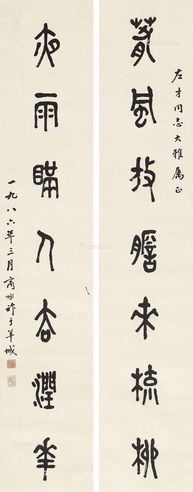 左才同志大雅属正
春風放膽來梳柳
夜雨瞞人去潤華
一九八六年三月商承祚于羊城